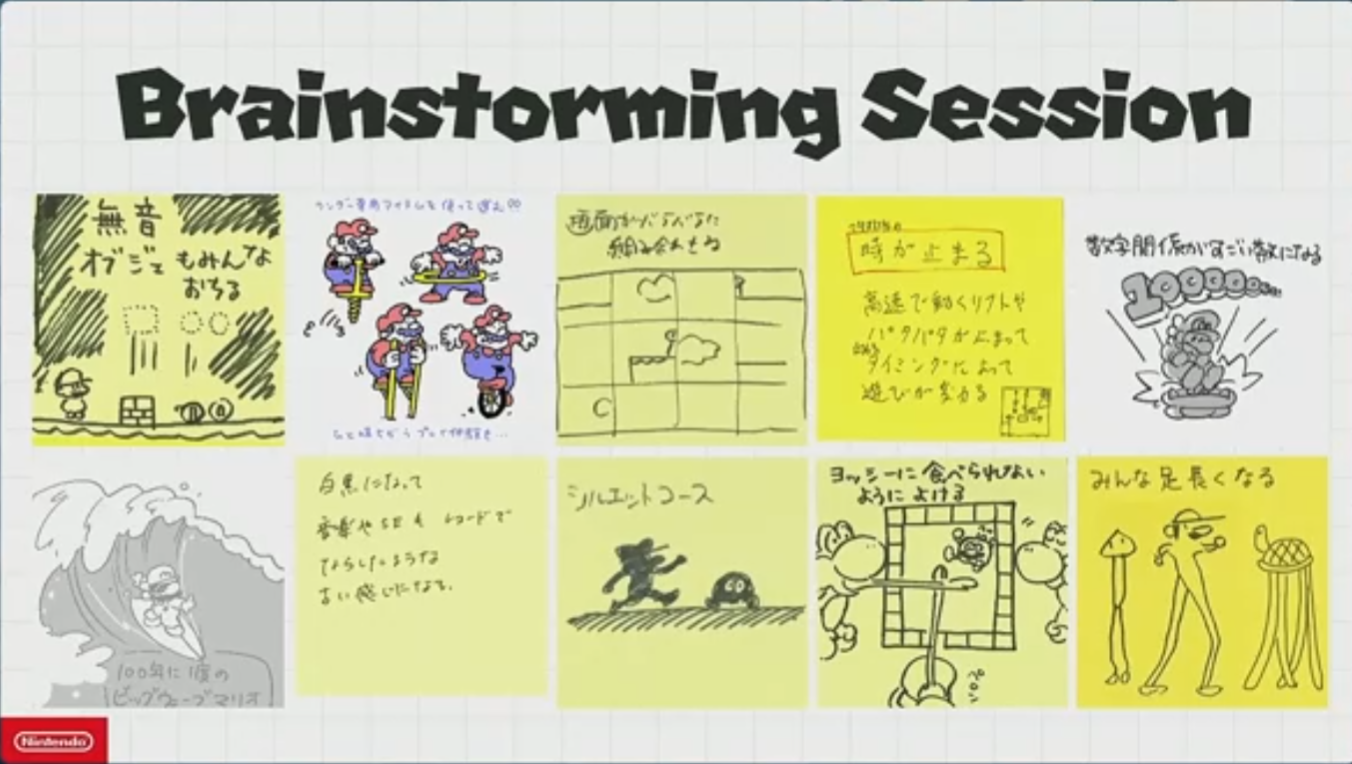 Brainstorming Session
無音
オブジェもみんな
おちる
ワンダー専用アイテムを使って遊ぶ!!
画面がバラバラな
組み合わせね
時が止まる
高速で動くリフトや
パタパタが止まって
タイミングによって
遊びが変わる
数字関係がすごい数になる
1000000
100年に1度の
ビッグウェーブマリオ
白黒になって
音楽やSEも レコードで
ならしたような
古い感じになる。
シルエットコース
ヨッシーに食べられない
ようによける
ペロン
みんな足長くなる
Nintendo